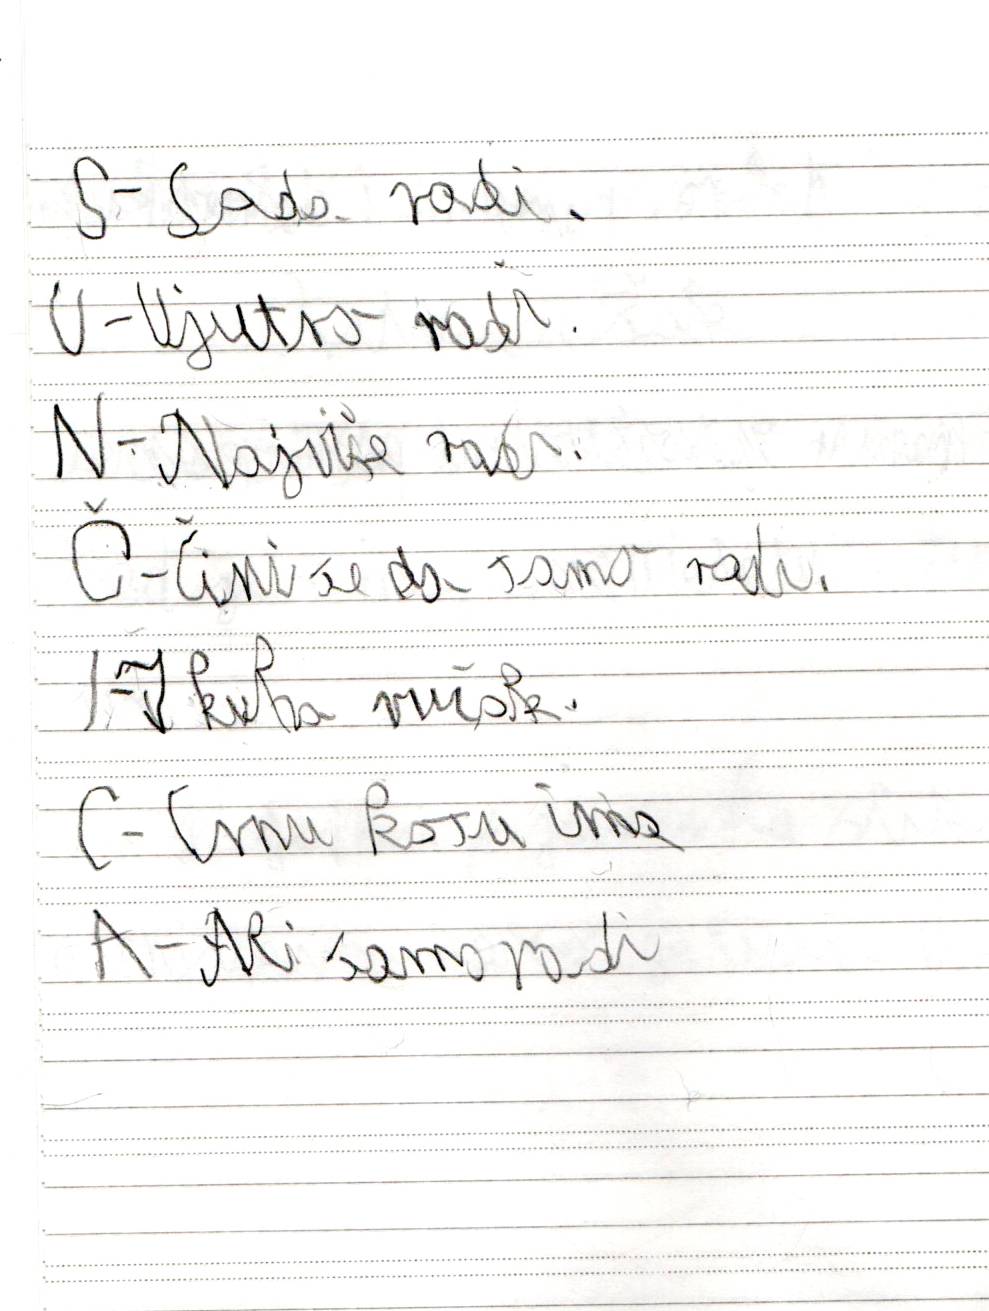 S-Sada radi.
U-Ujutro radi.
N-Najviše radi.
Č-Čini se da samo radi.
I-I kuha ručak.
C-Crnu kosu ima
A-Ali samo radi